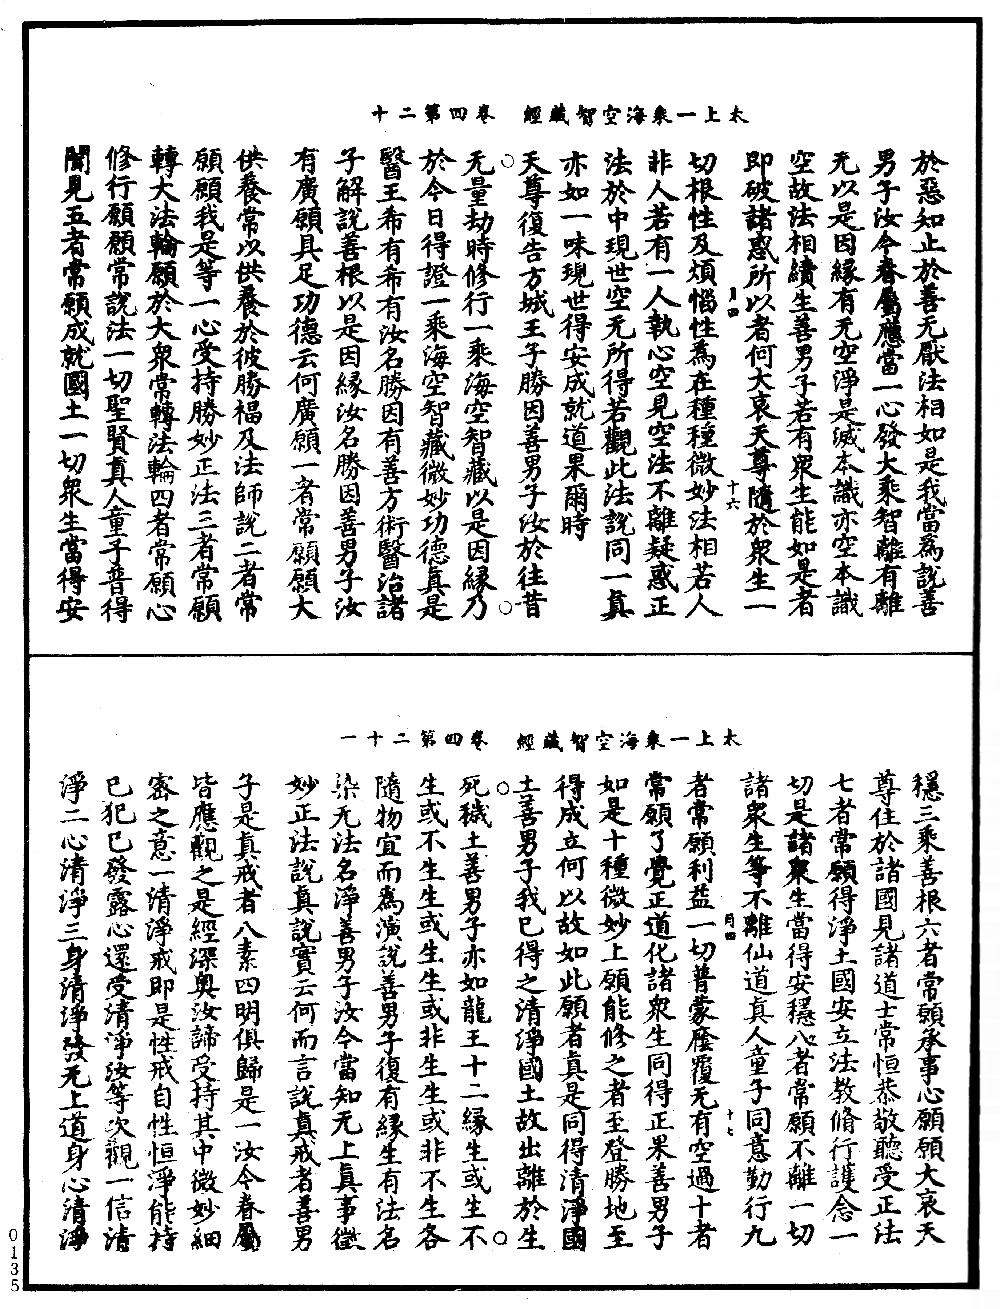 太上一乗海空智藏經　卷四第二十
於惡知止於善无厭法相如是我當為說善
男子汝今眷屬應當一心發大乘智離有離
无以是因緣有无空淨是滅本識亦空本識
空故法相續生善男子若有眾生能如是者
即破諸惑所以者何大哀天尊隨於眾生一
月四
十六
切根性及煩惱性為在種種微妙法相若人
非人若有一人執心空見空法不離疑惑正
法於中現世空无所得若觀此法說同一真
亦如一味現世得安成就道果爾時
天尊復告方城王子勝因善男子汝於往昔
无量劫時修行一乘海空智藏以是因緣乃
於今日得證一乘海空智藏微妙功德真是
醫王希有希有汝名勝因有善方術醫治諸
子解說善根以是因緣汝名勝因善男子汝
有廣願具足功德云何廣願一者常願願大
供養常以供養於彼勝福及法師說二者常
願願我是等一心受持勝妙正法三者常願
轉大法輪願於大眾常轉法輪四者常願心
修行願願常說法一切聖賢真人童子普得
聞見五者常願成就國土一切眾生當得安
太上一乗海空智藏經　卷四第二十一
穩三乘善根六者常願承事心願願大哀天
尊住於諸國見諸道士常恒恭敬聽受正法
七者常願得淨土國安立法教脩行護念一
切是諸眾生當得安穩八者常願不離一切
諸眾生等不離仙道真人童子同意勤行九
月四
十七
者常願利益一切普蒙廕覆无有空過十者
常願了覺正道化諸眾生同得正果善男子
如是十種微妙上願能修之者至登勝地至
得成立何以故如此願者真是同得清淨國
土善男子我已得之清淨國土故出離於生
死穢土善男子亦如龍王十二緣生或生不
生或不生生或生生或非生生或非不生各
隨物宜而為演說善男子復有緣生有法名
染无法名淨善男子汝今當知无上真事微
妙正法說真說實云何而言說真戒者善男
子是真戒者八素四明俱歸是一汝今眷屬
皆應觀之是經深奧汝諦受持其中微妙細
密之意一清淨戒即是性戒自性恒淨能持
已犯已發露心還受清淨汝等次觀一信清
淨二心清淨三身清淨發无上道身心清淨
0135